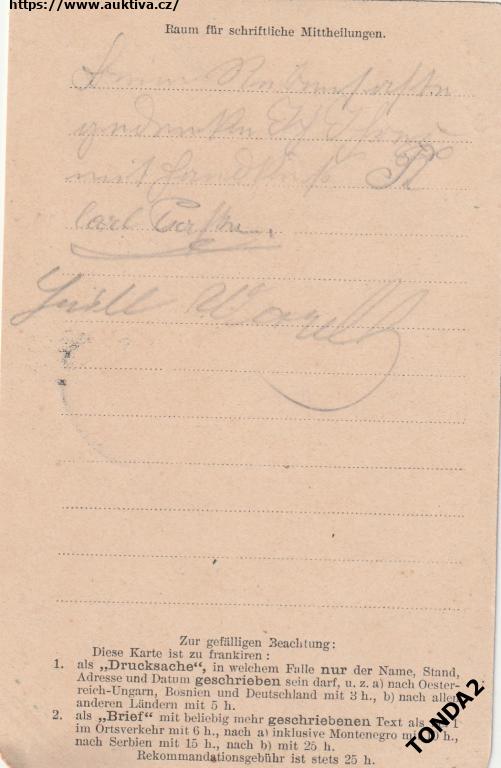 https://www.auktiva.cz/
Raum für schriftliche Mittheilungen.
gedenken
mit Handkuß
Carl
Zur gefälligen Beachtung:
Diese Karte ist zu frankiren:
1. als „Drucksache“, in welchem Falle nur der Name, Stand,
Adresse und Datum geschrieben sein darf, u. z. a) nach Oester-
reich-Ungarn, Bosnien und Deutschland mit 3 h., b) nach allen
anderen Ländern mit 5 h.
2. als „Brief“ mit beliebig mehr geschriebenen Text als
im Ortsverkehr mit 6 h., nach a) inklusive Montenegro mit h.,
nach Serbien mit 15 h., nach b) mit 25 h.
Rekommandationsgebühr ist stets 25 h.
TONDA2